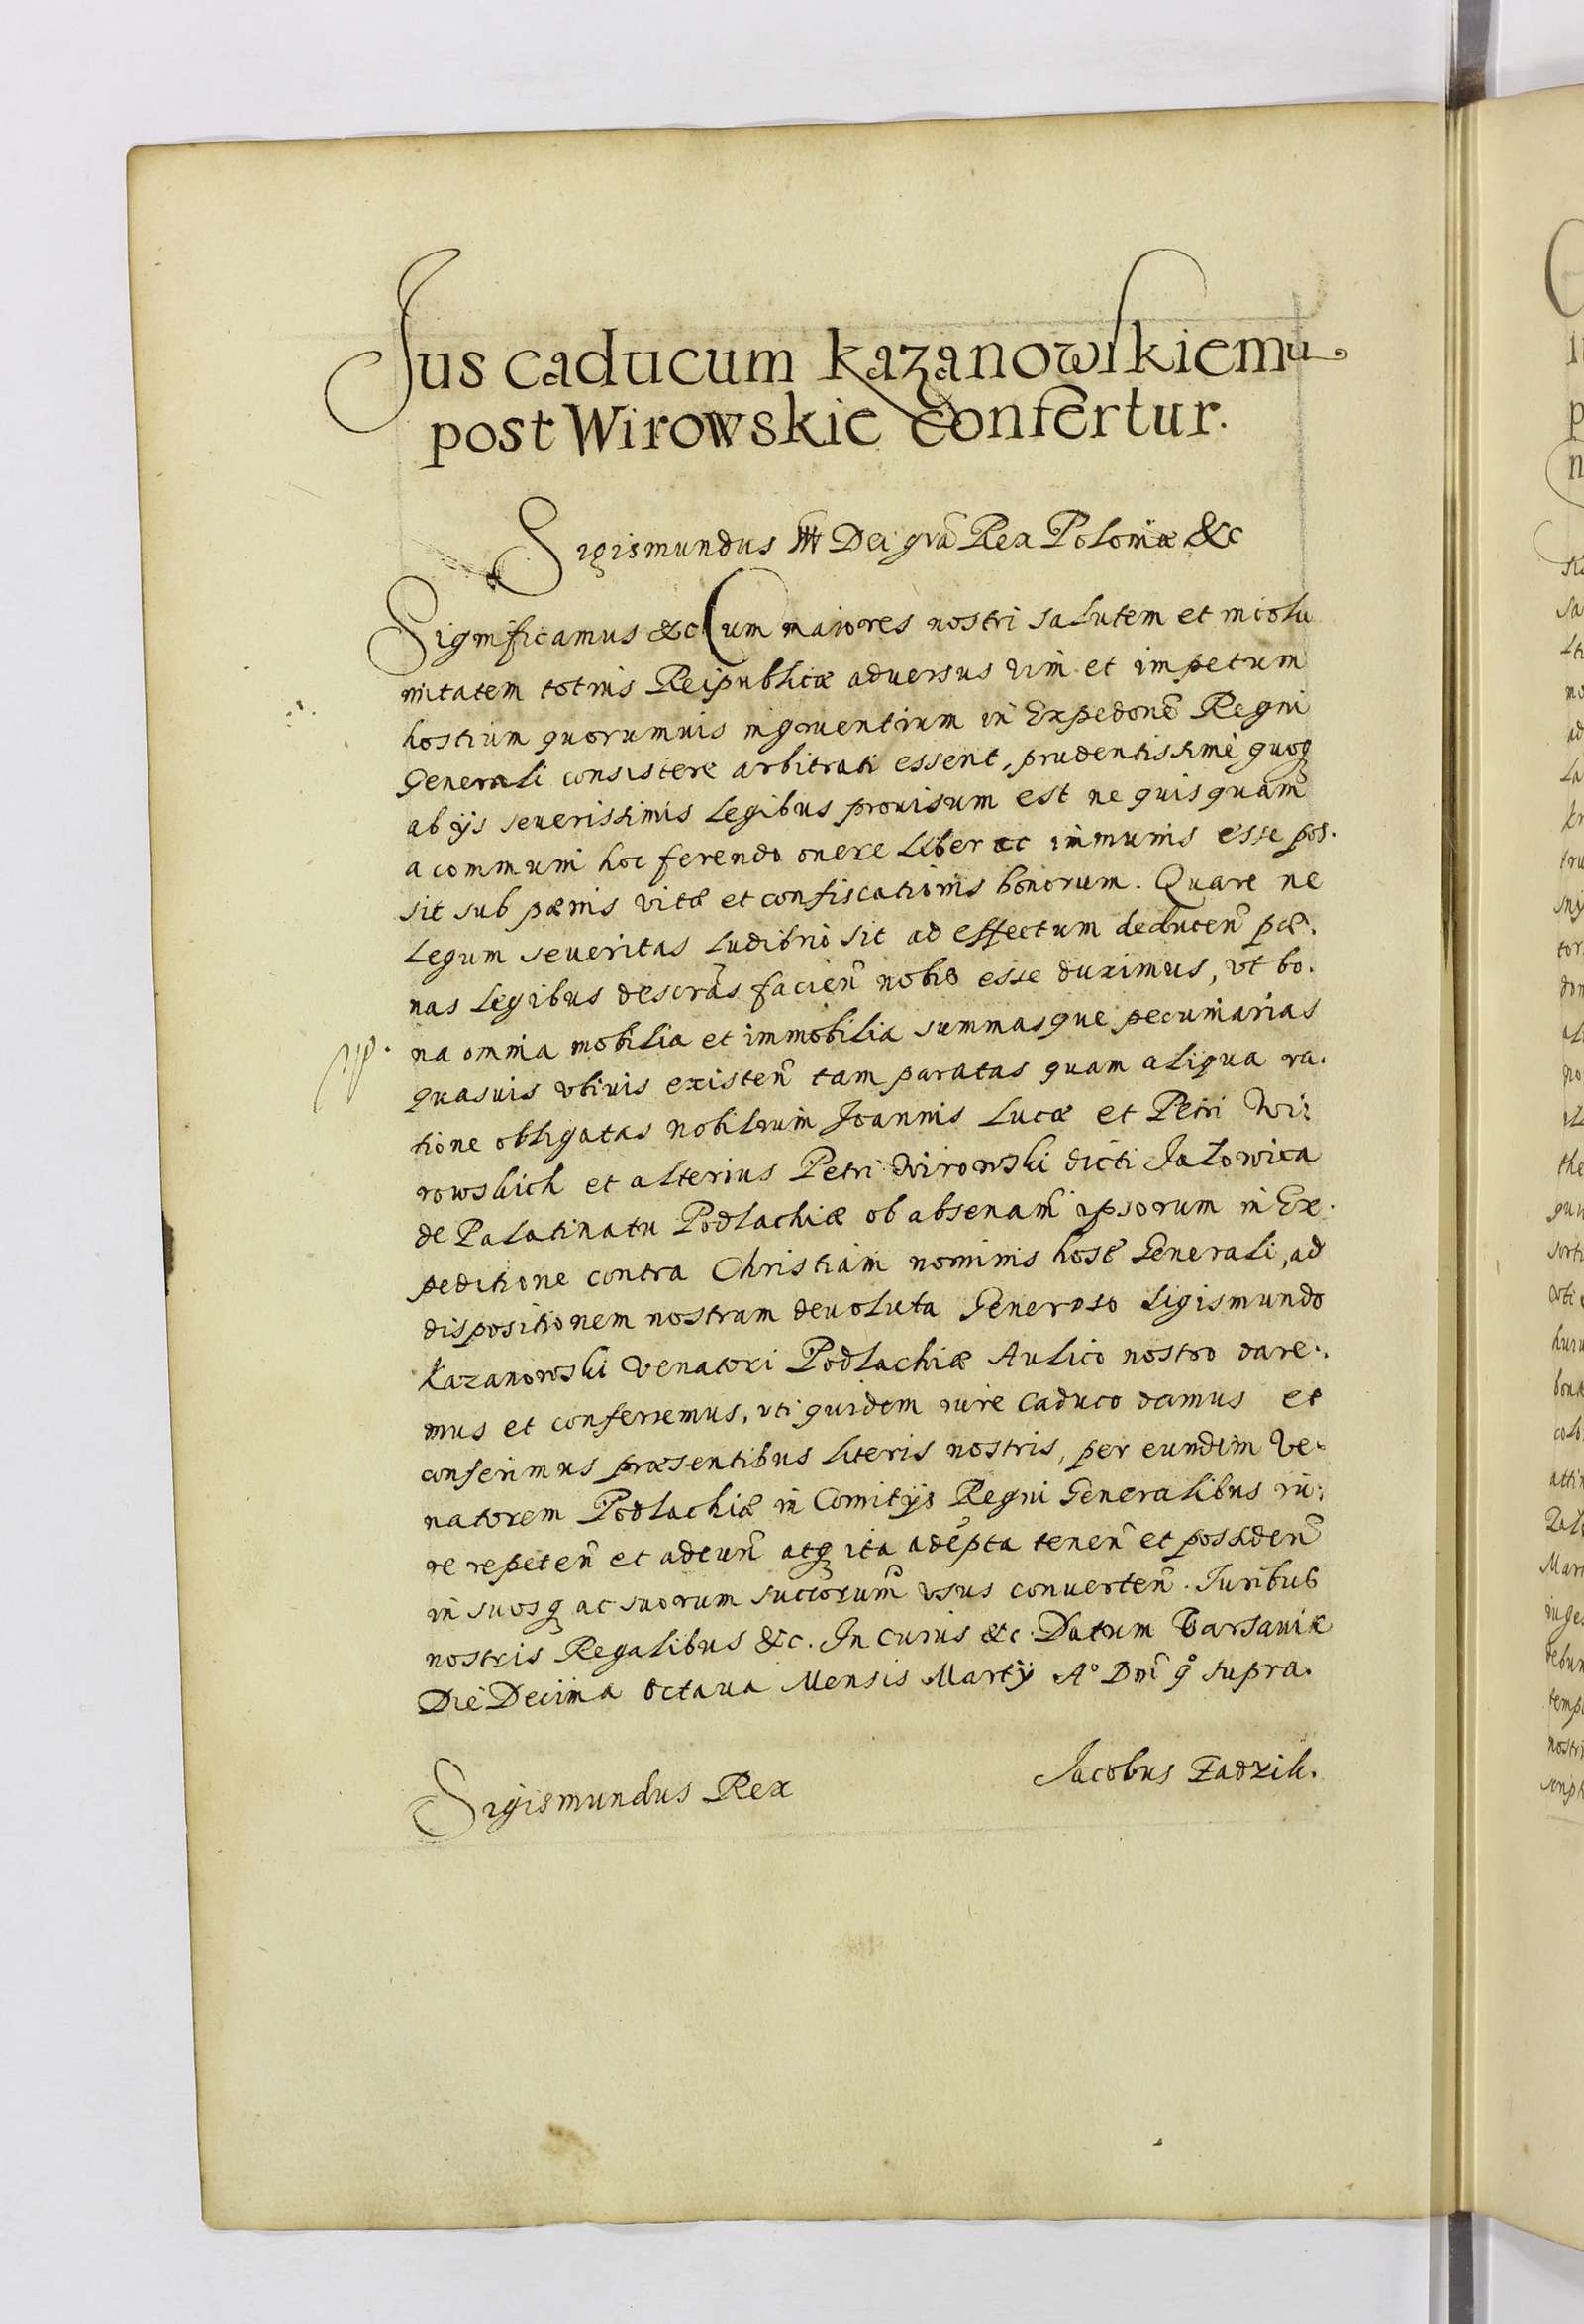 Jus caducum Kazanowskiemu
post Wirowskie confertur.
Sigismundus III Dei grã Rex Poloniæ &c
Significamus &c Cum maiores nostri salutem et incolu
mitatem totius Reipublicæ adversus vim et impetum
hostium quorumuis ingruentium in Expedonẽ Regni
Generali consistere arbitrati essent, prudentissimè quoq
ab ijs seuerissimis legibus prouisum est ne quisquam
a communi hoc ferendo onere liber ac immunis esse pos.
sit sub pænis vitæ et confiscationis bonorum. Quare ne
legum seueritas ludibrio sit ad effectum deducen̄ pæ.
nas legibus descrãs facien̄ nobis esse duximus, vt bo.
na omnia mobilia et immobilia summasque pecuniarias
quasuis vbiuis existen̄ tam paratas quam aliqua ra.
tione obligatas nobilium Joannis Lucæ et Petri Wi:
rowskich et alterius Petri Wirowski dicti Jałowica
de Palatinatu Podlachiæ ob absenam̃ ipsorum in Ex.
peditione contra Christiam nominis hosẽ Generali, ad
dispositionem nostram deuoluta Generoso Sigismundo
Kazanowski Venatori Podlachiæ Aulico nostro dare.
mus et conferremus, vti quidem iure caduco damus et
conferimus præsentibus literis nostris, per eundem Ve.
natorem Podlachiæ in Comitijs Regni Generalibus iu:
re repeten̄ et adeun̄ atq ita adepta tenen̄ et possiden̄
in suosq ac suorum succorum̃ vsus conuerten̄. Juribus
nostris Regalibus &c. In cuius &c. Datum Varsauiæ
Die Decima Octaua Mensis Martij Aº Dnĩ qº supra.
Sigismundus Rex
Jacobus Zadzik.